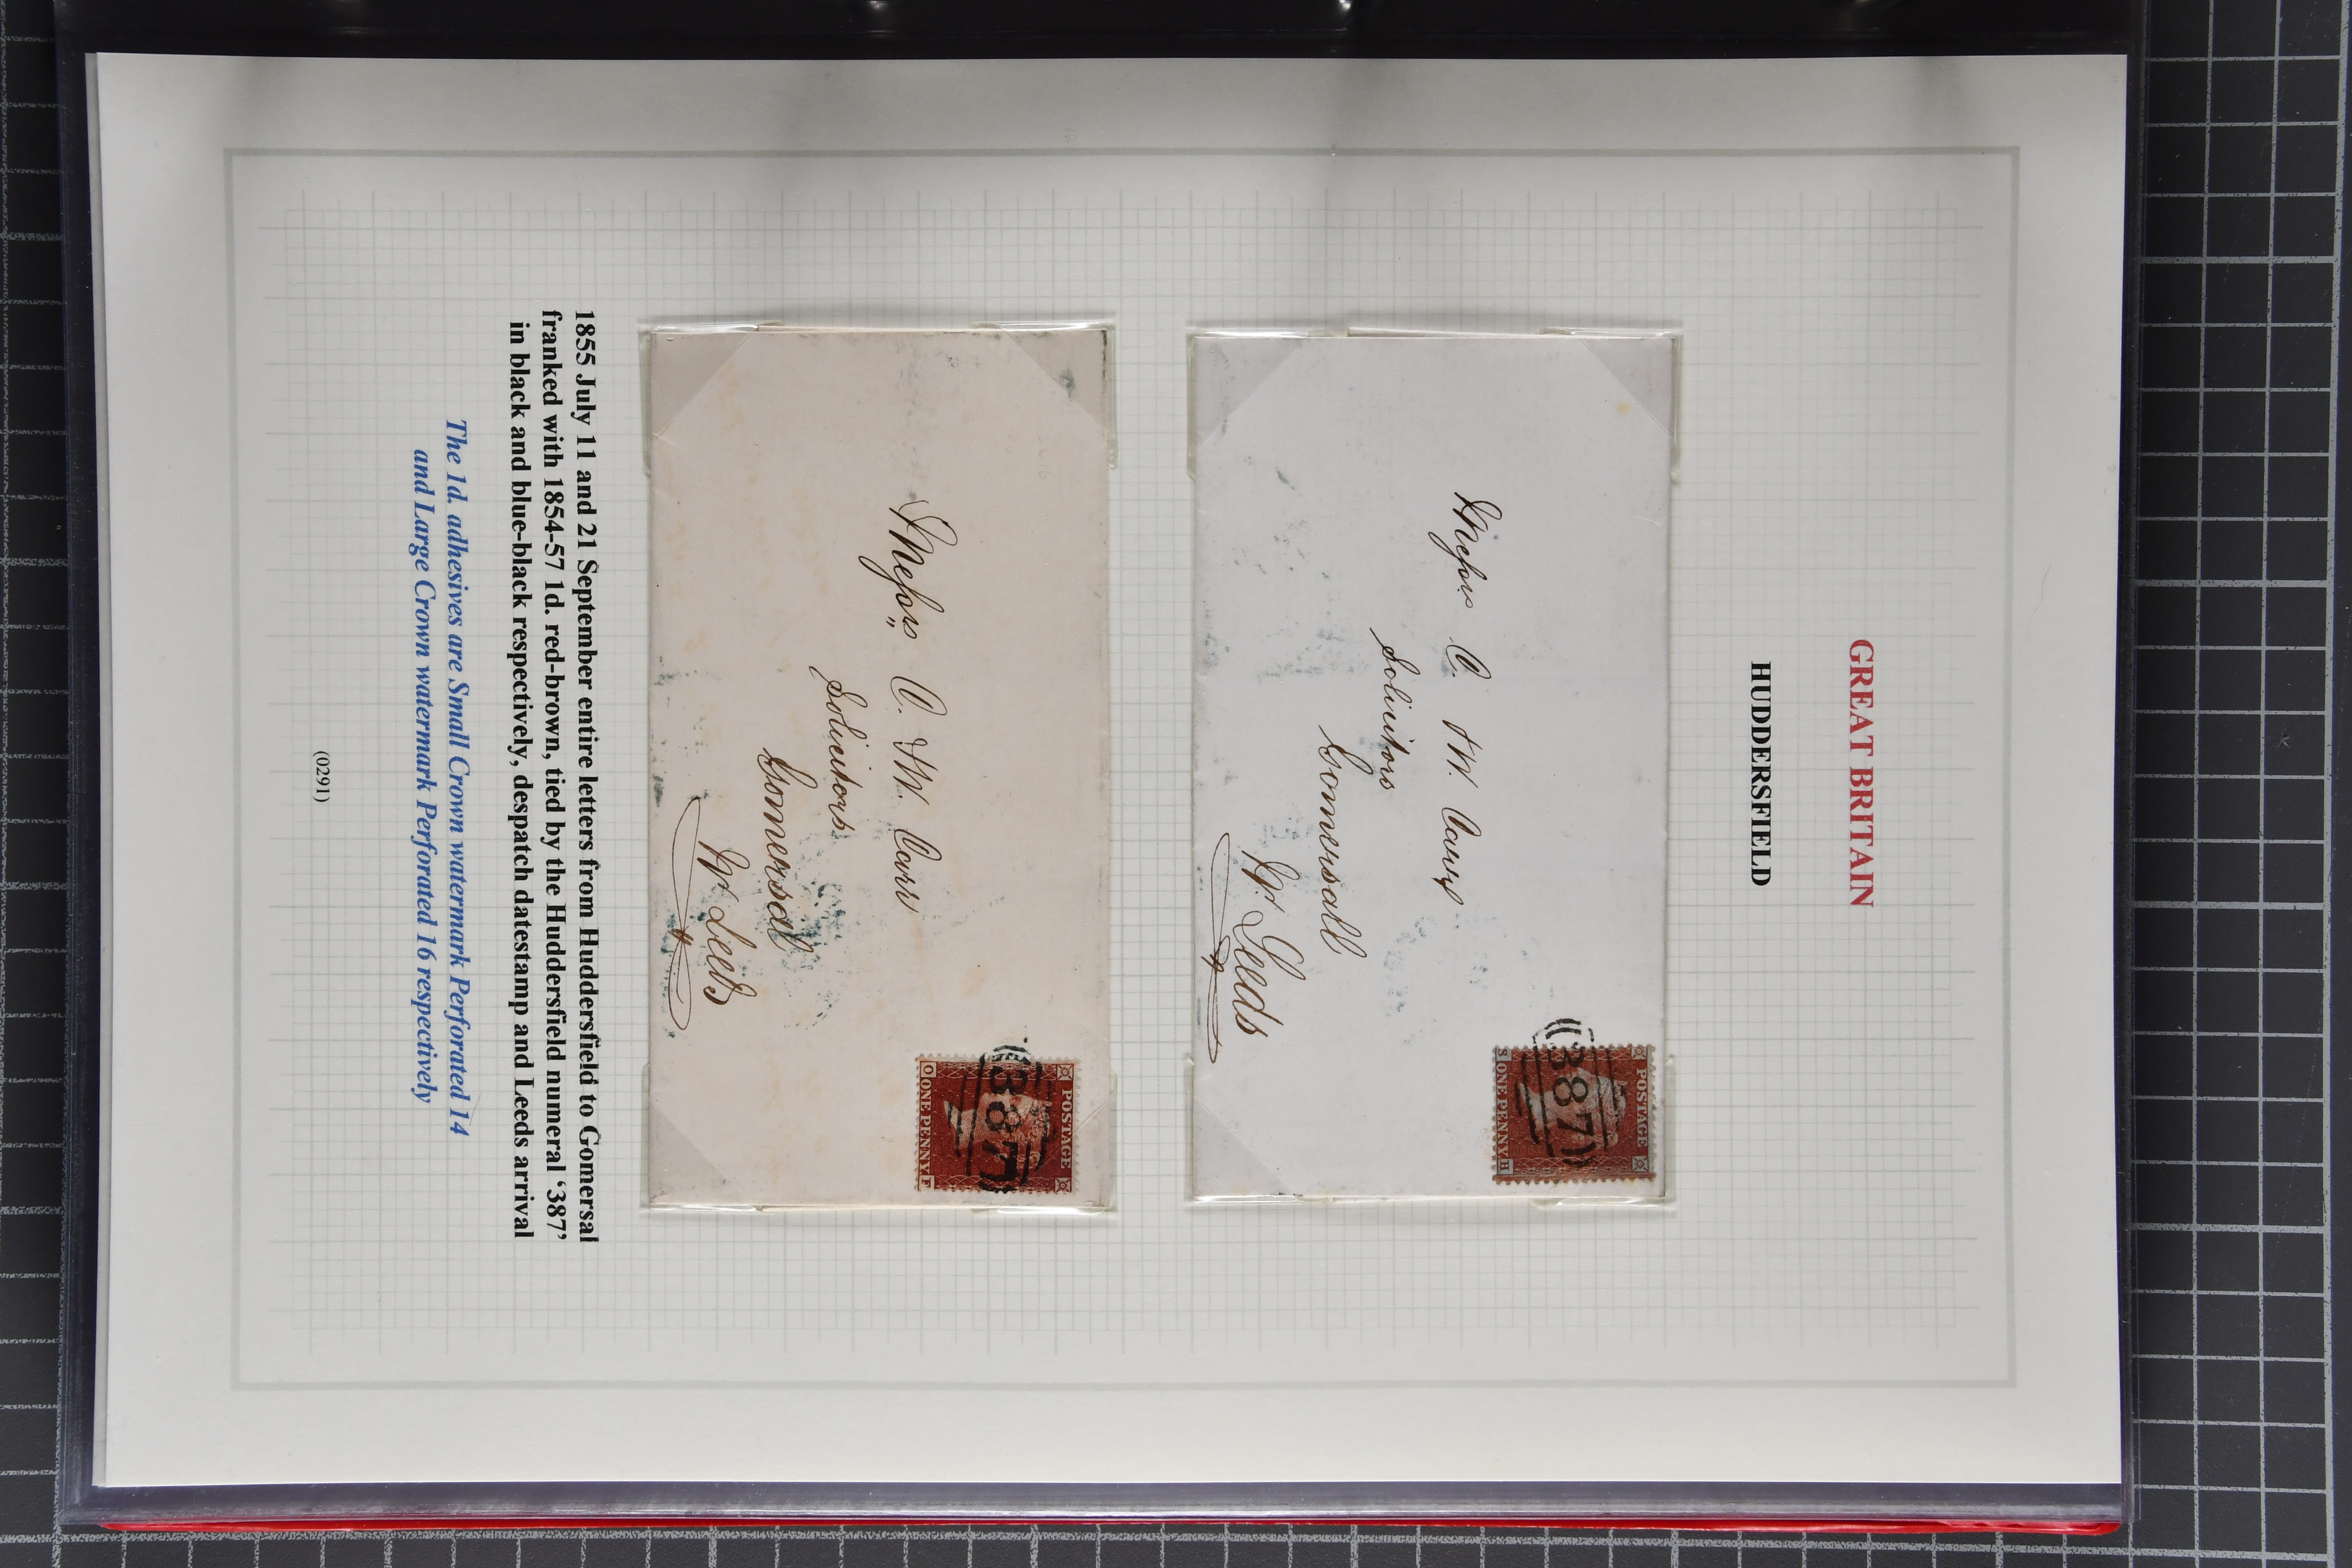 GREAT BRITAIN
HUDDERSFIELD
POSTAGE
387
S ONE PENNY H
Messrs C. & W. Carr
Solicitors
Gomersall
Nr Leeds
POSTAGE
387
O ONE PENNY F
Messrs C. & W. Carr
Solicitors
Gomersal
Nr Leeds
1855 July 11 and 21 September entire letters from Huddersfield to Gomersal
franked with 1854-57 1d. red-brown, tied by the Huddersfield numeral ‘387’
in black and blue-black respectively, despatch datestamp and Leeds arrival
The 1d. adhesives are Small Crown watermark Perforated 14
and Large Crown watermark Perforated 16 respectively
(0291)